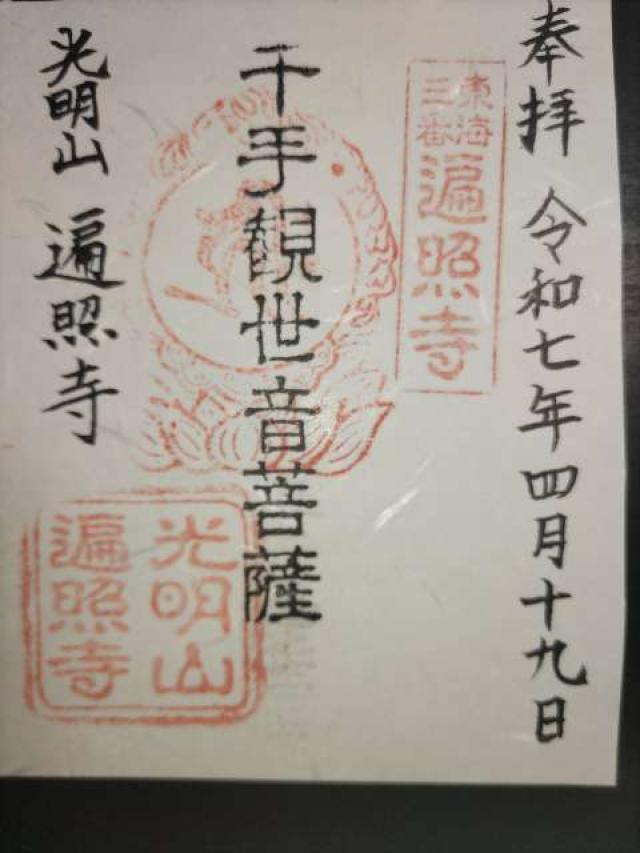 奉拝 令和七年四月十九日
東海
三番
遍照寺
千手観世音菩薩
光明山 遍照寺
光明山
遍照寺